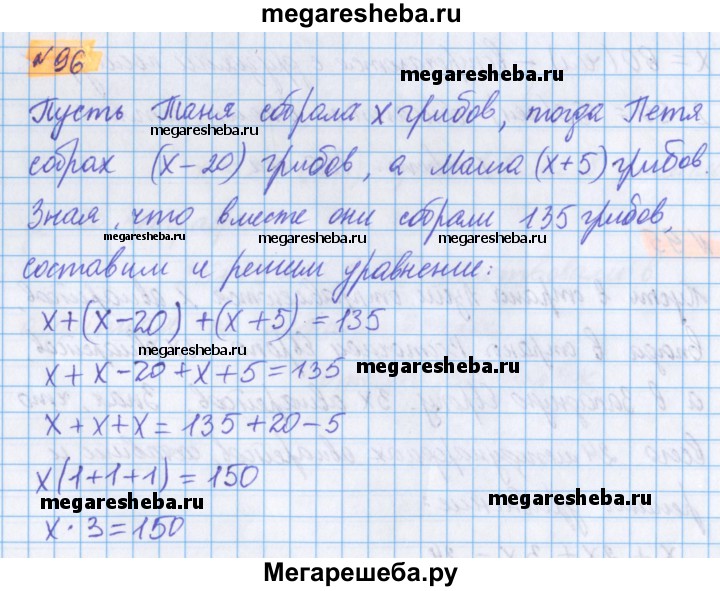 megaresheba.ru
№96
megaresheba.ru
Пусть Таня собрала x грибов, тогда Петя
megaresheba.ru
собрах (x-20) грибов, а Маша (x+5) грибов.
Зная, что вместе они собрали 135 грибов,
megaresheba.ru
составим и решим уравнение:
x+(x-20)+(x+5)=135
megaresheba.ru
megaresheba.ru
x+x-20+x+5=135
x+x+x=135+20-5
x(1+1+1)=150
megaresheba.ru
megaresheba.ru
x·3=150
Мегарешеба.ру